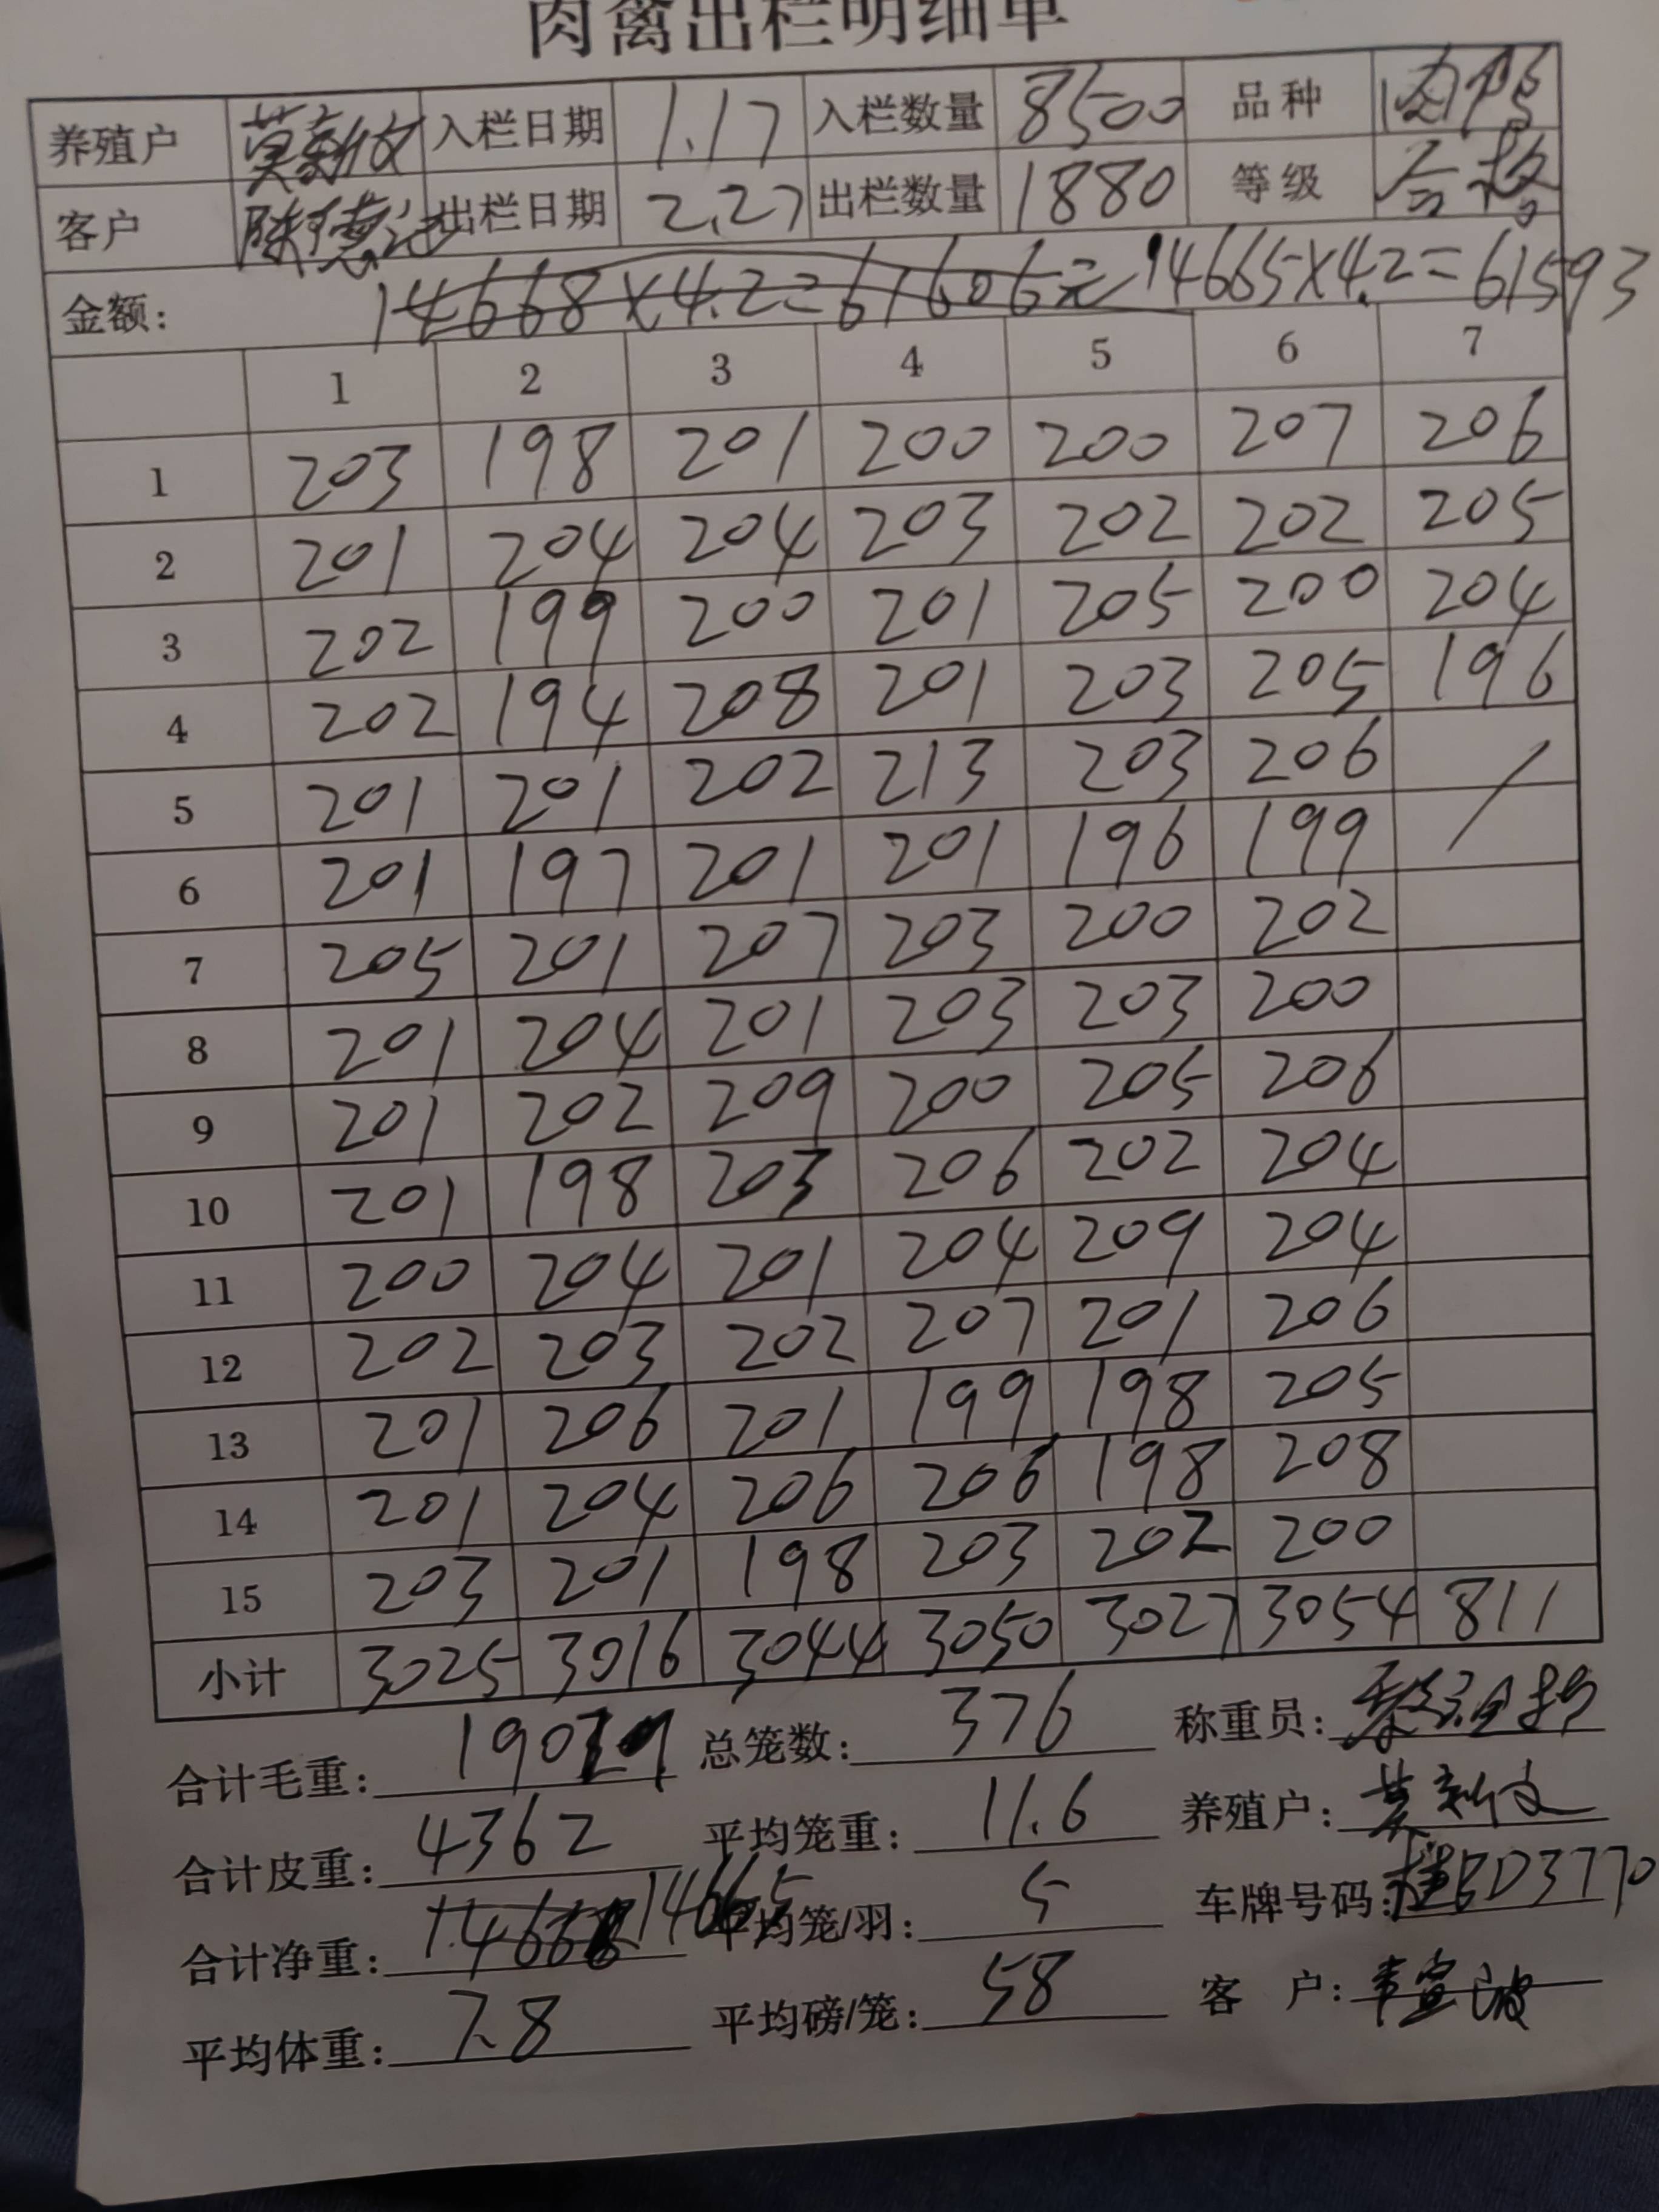 肉禽出栏明细单
养殖户 莫新文 入栏日期 1.17 入栏数量 8500 品种 肉鸭
客户 陈德 出栏日期 2.27 出栏数量 1880 等级 合格
金额: 14668×4.2=61606元 14665×4.2=61593
1 2 3 4 5 6 7
1 203 198 201 200 200 207 206
2 201 204 204 203 202 202 205
3 202 199 200 201 205 200 204
4 202 194 208 201 203 205 196
5 201 201 202 213 203 206 /
6 201 197 201 201 196 199
7 205 201 207 203 200 202
8 201 204 201 203 203 200
9 201 202 209 200 205 206
10 201 198 203 206 202 204
11 200 204 201 204 209 204
12 202 203 202 207 201 206
13 201 206 201 199 198 205
14 201 204 206 206 198 208
15 203 201 198 203 202 200
小计 3025 3016 3044 3050 3027 3054 811
合计毛重: 总笼数: 376 称重员:
合计皮重: 4362 平均笼重: 11.6 养殖户: 莫新文
合计净重: 14668 14665 平均笼/羽: 5 车牌号码: 桂BD3770
平均体重: 7.8 平均磅/笼: 58 客 户: 韦宣